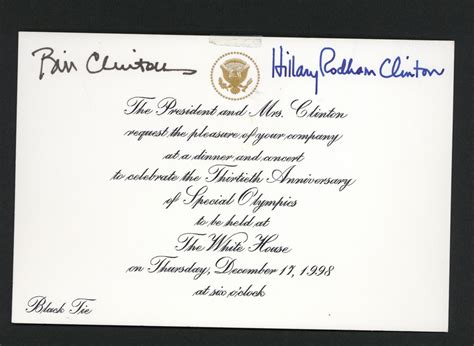 Bill Clinton Hillary Rodham Clinton
The President and Mrs. Clinton
request the pleasure of your company
at a dinner and concert
to celebrate the Thirtieth Anniversary
of Special Olympics
to be held at
The White House
on Thursday, December 17, 1998
at six o'clock
Black Tie